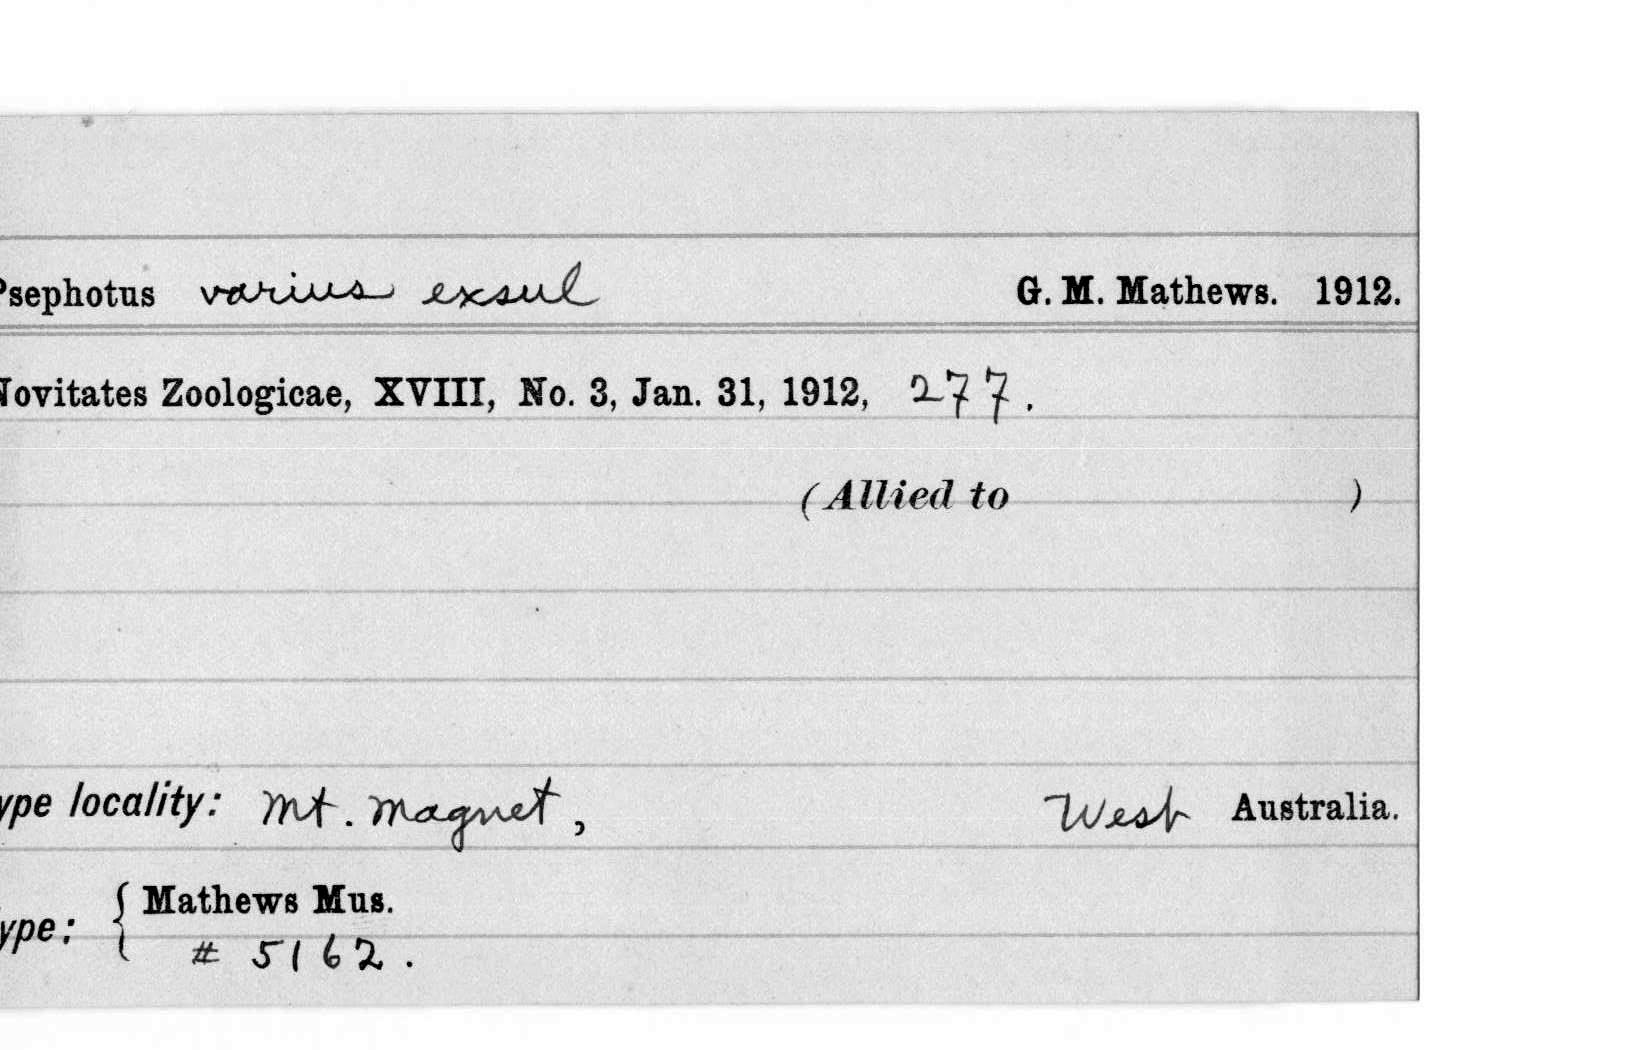 Psephotus varius exsul G. M. Mathews. 1912.
Novitates Zoologicae, XVIII, No. 3, Jan. 31, 1912, 277.
(Allied to )
ype locality: Mt. Magnet, West Australia.
ype: { Mathews Mus.
# 5162.